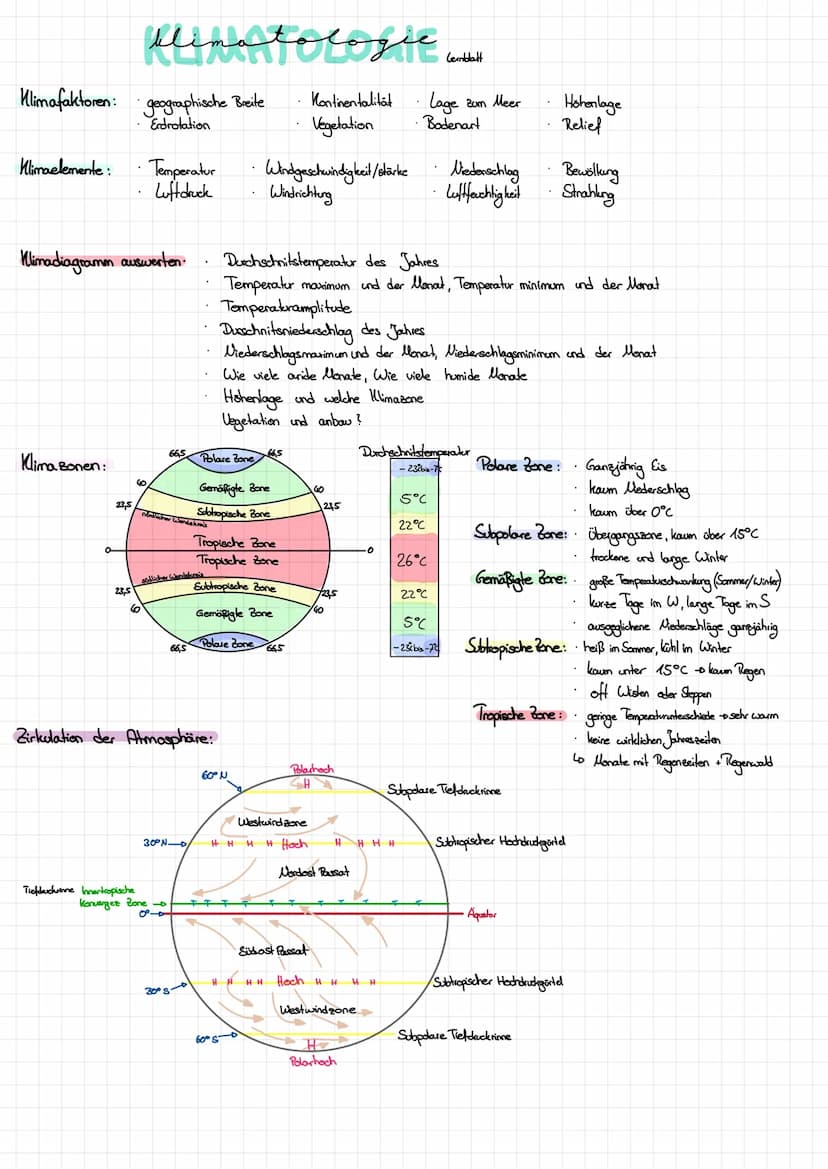 Klimatologie
KLIMATOLOGIE
Lernblatt
Klimafaktoren: · geographische Breite · Kontinentalität · Lage zum Meer · Höhenlage
· Erdrotation · Vegetation · Bodenart · Relief
Klimaelemente: · Temperatur · Windgeschwindigkeit/stärke · Niederschlag · Bewölkung
· Luftdruck · Windrichtung · Luftfeuchtigkeit · Strahlung
Klimadiagramm auswerten: · Durchschnitstemperatur des Jahres
· Temperatur maximum und der Monat, Temperatur minimum und der Monat
· Temperaturamplitude
· Durschnitsniederschlag des Jahres
· Niederschlagsmaximum und der Monat, Niederschlagsminimum und der Monat
· Wie viele aride Monate, Wie viele humide Monate
· Höhenlage und welche Klimazone
Vegetation und anbau?
Klimazonen:
66,5 Polare Zone 66,5
60 Gemäßigte Zone 60
23,5 Subtropische Zone 23,5
nördlicher Wendekreis
Tropische Zone
0 0
Tropische Zone
südlicher Wendekreis
23,5 Subtropische Zone 23,5
60 Gemäßigte Zone 60
66,5 Polare Zone 66,5
Durchschnitstemperatur
-23 bis -7°C
5°C
22°C
26°C
22°C
5°C
-23 bis -7°C
Polare Zone: · Ganzjährig Eis
· kaum Niederschlag
· kaum über 0°C
Subpolare Zone: · Übergangszone, kaum über 15°C
· trockene und lange Winter
Gemäßigte Zone: · große Temperaturschwankung (Sommer/Winter)
· kurze Tage im W, lange Tage im S
· ausgeglichene Niederschläge ganzjährig
Subtropische Zone: · heiß im Sommer, kühl im Winter
· kaum unter 15°C → kaum Regen
· oft Wüsten oder Steppen
Tropische Zone: · geringe Temperaturunterschiede → sehr warm
· keine wirklichen Jahreszeiten
↳ Monate mit Regenzeiten + Regenwald
Zirkulation der Atmosphäre:
Polarhoch
60° N H Subpolare Tiefdruckrinne
Westwindzone
30° N H H H H Hoch H H H H Subtropischer Hochdruckgürtel
Nordost Passat
Tiefdruckrinne Innertropische
Konvergez Zone T T T T T T T T T T
0° Äquator
Südost Passat
30° S H H H H Hoch H H H H Subtropischer Hochdruckgürtel
Westwindzone
60° S H Subpolare Tiefdruckrinne
Polarhoch